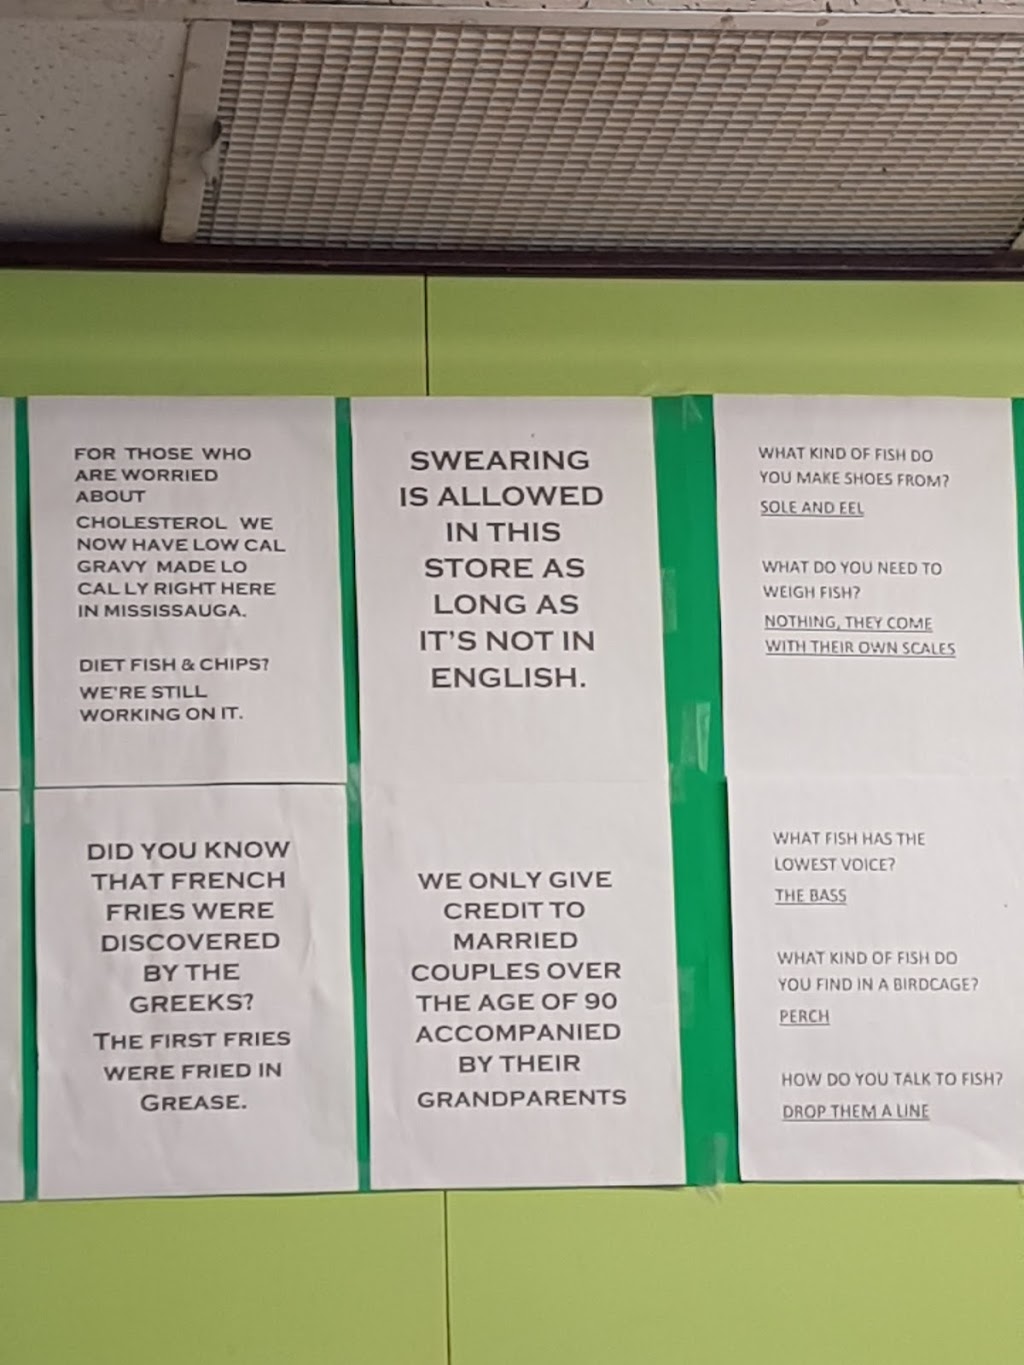 FOR THOSE WHO
ARE WORRIED
ABOUT
CHOLESTEROL WE
NOW HAVE LOW CAL
GRAVY MADE LO
CAL LY RIGHT HERE
IN MISSISSAUGA.
DIET FISH & CHIPS?
WE'RE STILL
WORKING ON IT.
DID YOU KNOW
THAT FRENCH
FRIES WERE
DISCOVERED
BY THE
GREEKS?
THE FIRST FRIES
WERE FRIED IN
GREASE.
SWEARING
IS ALLOWED
IN THIS
STORE AS
LONG AS
IT'S NOT IN
ENGLISH.
WE ONLY GIVE
CREDIT TO
MARRIED
COUPLES OVER
THE AGE OF 90
ACCOMPANIED
BY THEIR
GRANDPARENTS
WHAT KIND OF FISH DO
YOU MAKE SHOES FROM?
SOLE AND EEL
WHAT DO YOU NEED TO
WEIGH FISH?
NOTHING, THEY COME
WITH THEIR OWN SCALES
WHAT FISH HAS THE
LOWEST VOICE?
THE BASS
WHAT KIND OF FISH DO
YOU FIND IN A BIRDCAGE?
PERCH
HOW DO YOU TALK TO FISH?
DROP THEM A LINE